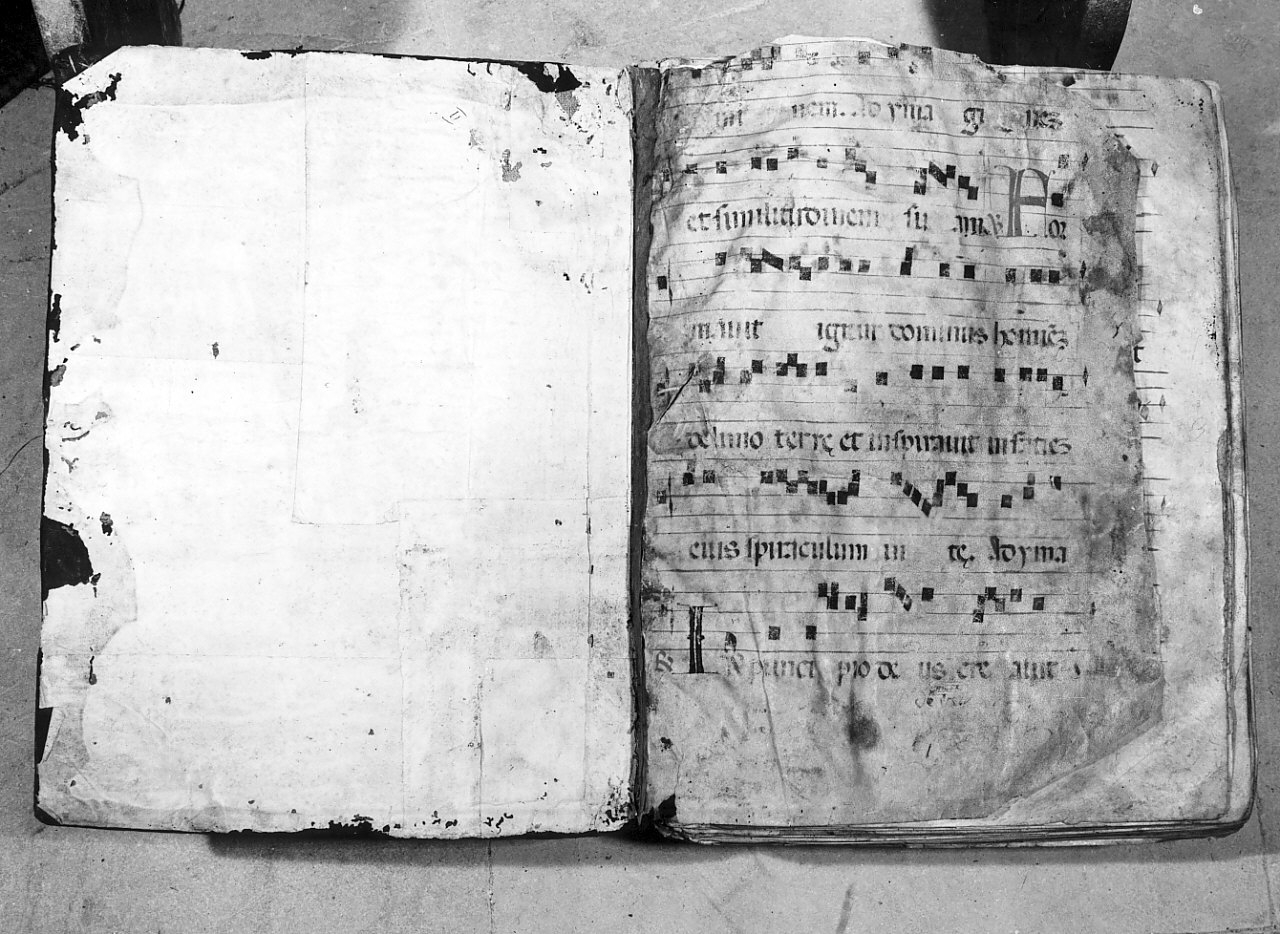 nem. Ad yma gi nes
et similitudinem su am. ℟ For
mauit igitur dominus homineʒ
de limo terrę et inspirauit in facieʒ
eius spiraculum ui tę. Ad yma
℣ In princi pio de us cre auit